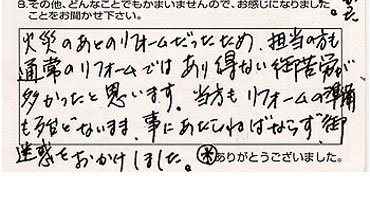 8.その他、どんなことでもかまいませんので、お感じになりました
ことをお聞かせ下さい。
火災のあとのリフォームだったため、担当の方も
通常のリフォームではあり得ない御苦労が
多かったと思います。当方もリフォームの準備
も殆どないまま、事にあたらねばならず、御
迷惑をおかけしました。
ありがとうございました。